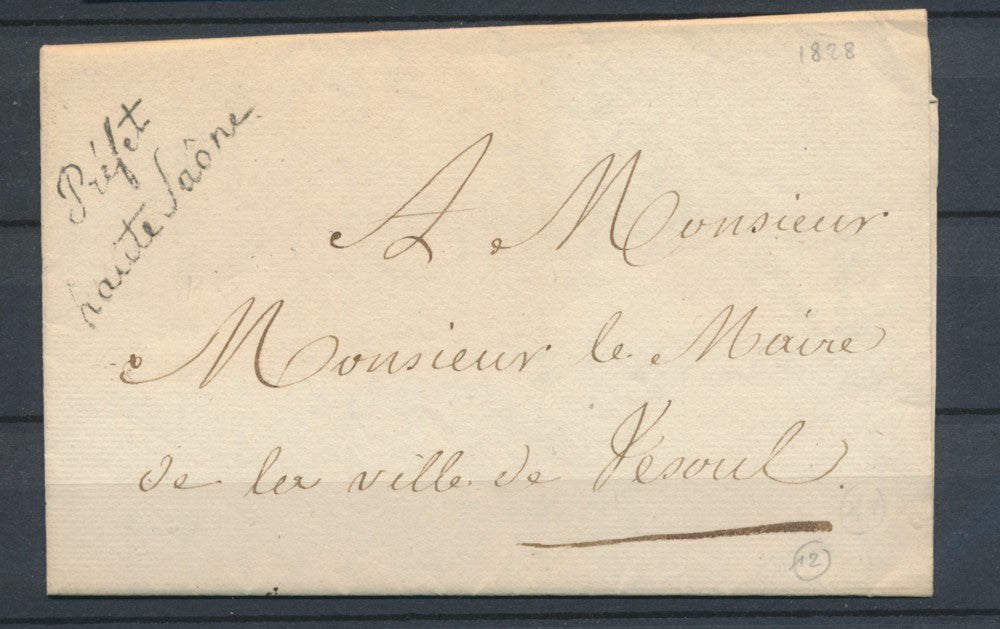 1828
Préfet
haute Saône.
A Monsieur
Monsieur le Maire
de la ville de Vesoul.
12